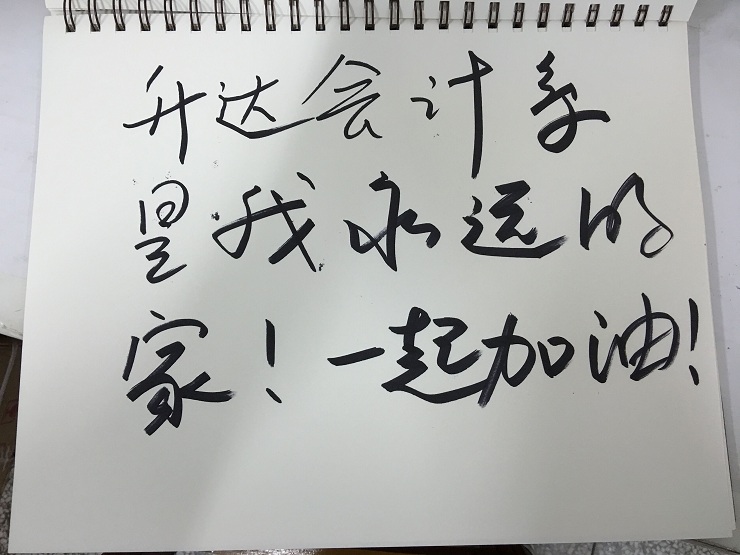 升达会计系
是我永远的
家！一起加油！